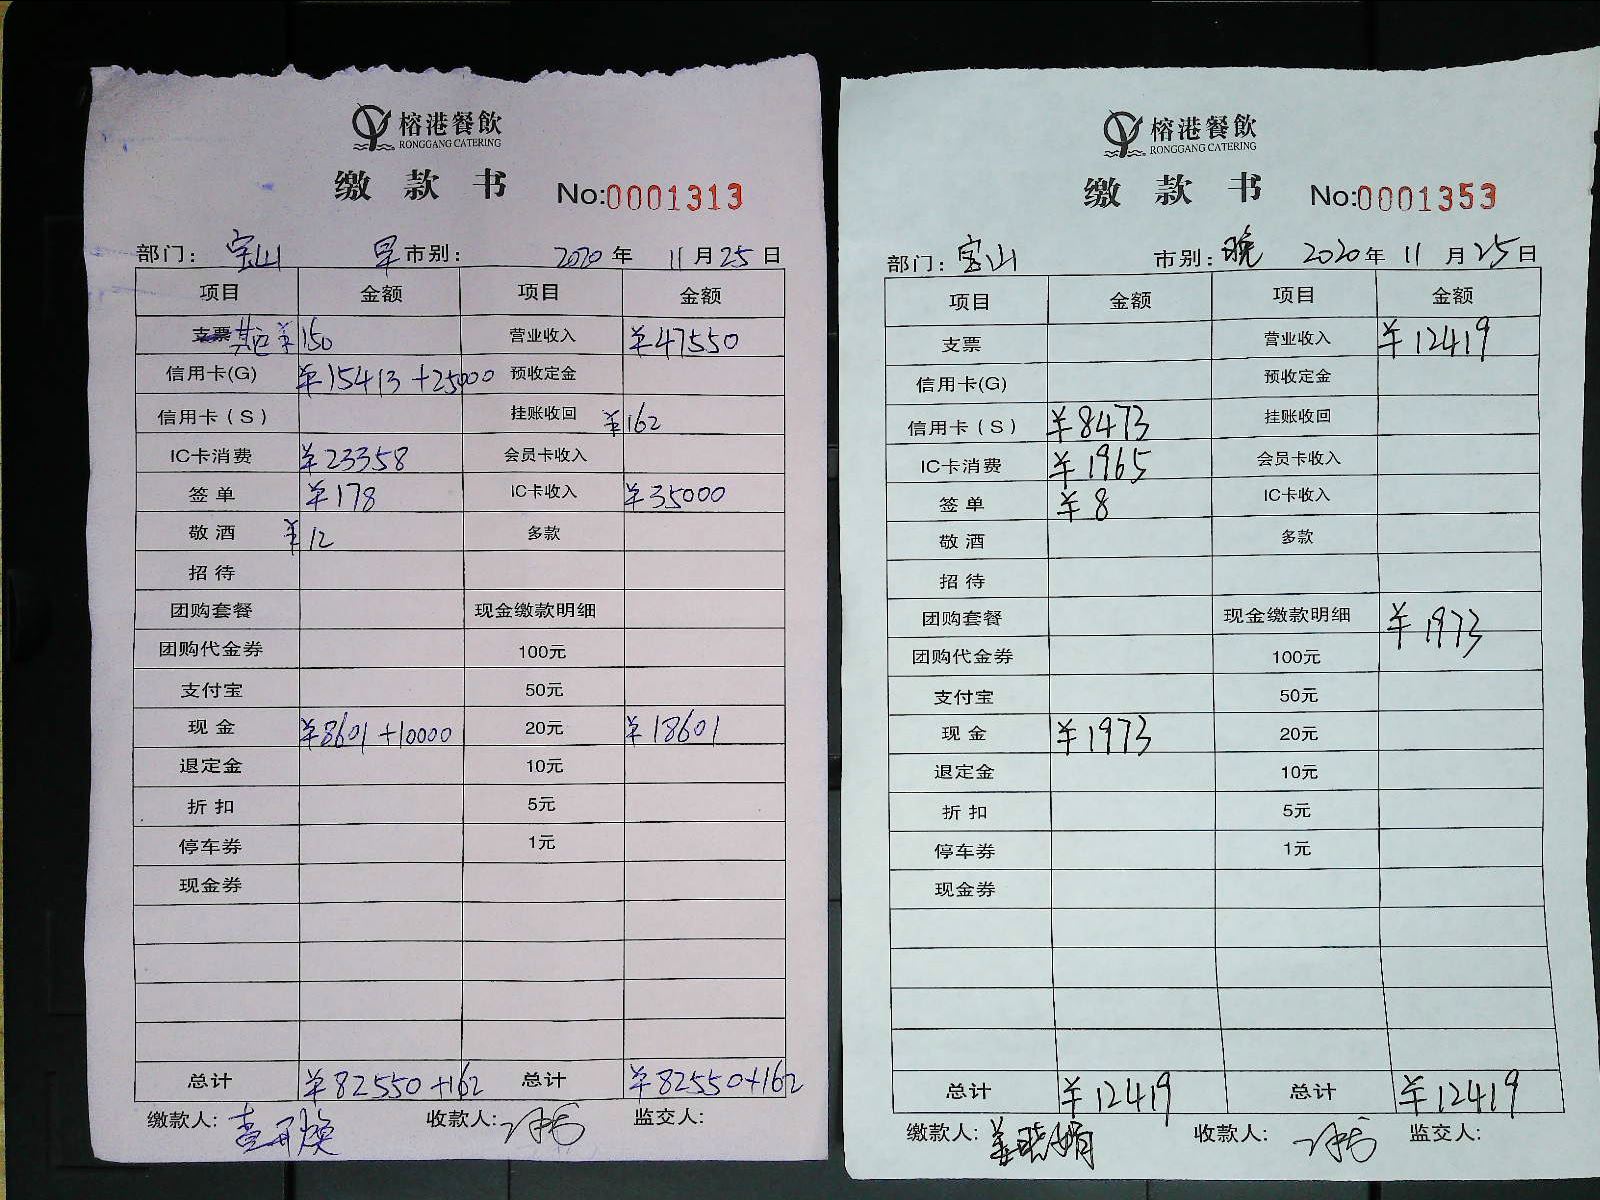 榕港餐飲
RONGGANG CATERING
缴款书 No:0001313
部门: 宝山 早市别: 2020年 11月25日
项目 金额 项目 金额
支票 其它 ¥150 营业收入 ¥47550
信用卡(G) ¥15413+25000 预收定金
信用卡(S) 挂账收回 ¥162
IC卡消费 ¥23358 会员卡收入
签单 ¥178 IC卡收入 ¥35000
敬酒 ¥12 多款
招待
团购套餐 现金缴款明细
团购代金券 100元
支付宝 50元
现金 ¥8601+10000 20元 ¥18601
退定金 10元
折扣 5元
停车券 1元
现金券
总计 ¥82550+162 总计 ¥82550+162
缴款人: 收款人: 监交人:
榕港餐飲
RONGGANG CATERING
缴款书 No:0001353
部门: 宝山 市别: 晚 2020年 11月25日
项目 金额 项目 金额
支票 营业收入 ¥12419
信用卡(G) 预收定金
信用卡(S) ¥8473 挂账收回
IC卡消费 ¥1965 会员卡收入
签单 ¥8 IC卡收入
敬酒 多款
招待
团购套餐 现金缴款明细 ¥1973
团购代金券 100元
支付宝 50元
现金 ¥1973 20元
退定金 10元
折扣 5元
停车券 1元
现金券
总计 ¥12419 总计 ¥12419
缴款人: 收款人: 监交人: